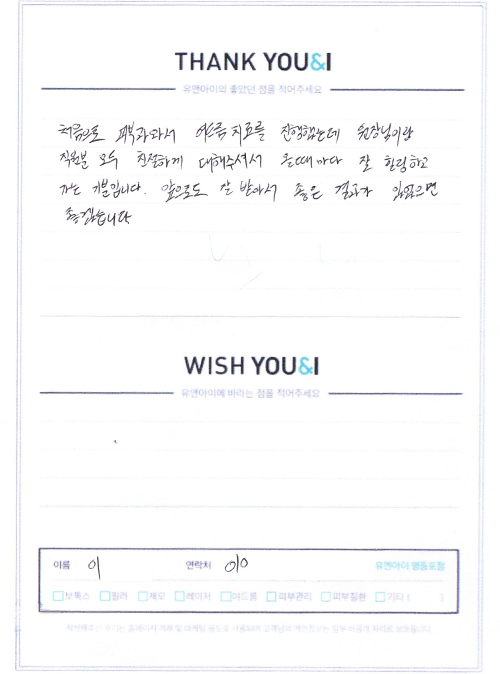 THANK YOU&I
유앤아이의 좋았던 점을 적어주세요
처음으로 피부과와서 여드름 치료를 진행했는데 원장님이랑
직원분 모두 친절하게 대해주셔서 올때마다 잘 힐링하고
가는 기분입니다. 앞으로도 잘 받아서 좋은 결과가 있었으면
좋겠습니다
WISH YOU&I
유앤아이에 바라는 점을 적어주세요
이름 이 연락처 010 유앤아이 영등포점
보톡스 필러 제모 레이저 여드름 피부관리 피부질환 기타 ( )